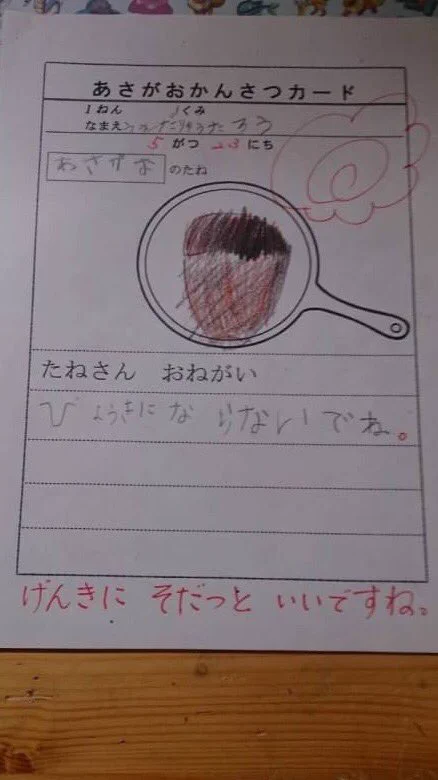 あさがおかんさつカード
1ねん 1くみ
なまえ
5がつ23にち
あさがおのたね
たねさん　おねがい
びょうきにならないでね。
げんきに そだっと いいですね。